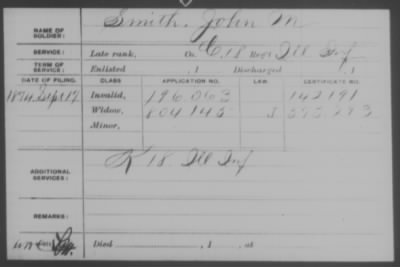 NAME OF SOLDIER: Smith, John M
SERVICE: Late rank, Co. C, 18 Reg't Ill Inf
TERM OF SERVICE: Enlisted , 1 Discharged , 1
DATE OF FILING. CLASS. APPLICATION NO. LAW. CERTIFICATE NO.
1874 Sept 17 Invalid, 196.063 142191
Widow, 804145
Minor,
ADDITIONAL SERVICES: K 18. Ill Inf
REMARKS:
Died , 1 , at